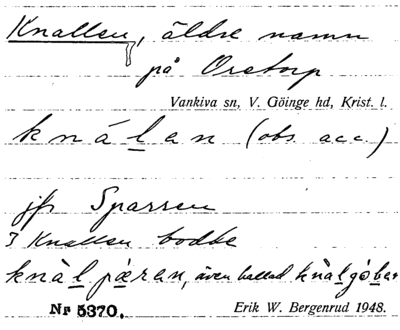 Knallen, äldre namn
på Oretorp
Vankiva sn, V. Göinge hd, Krist. l.
knálan (obs. acc.)
jfr Sparren
I Knallen bodde
knàl pǽran, även kallad knàlgóban
Nr 5370. Erik W. Bergenrud 1948.